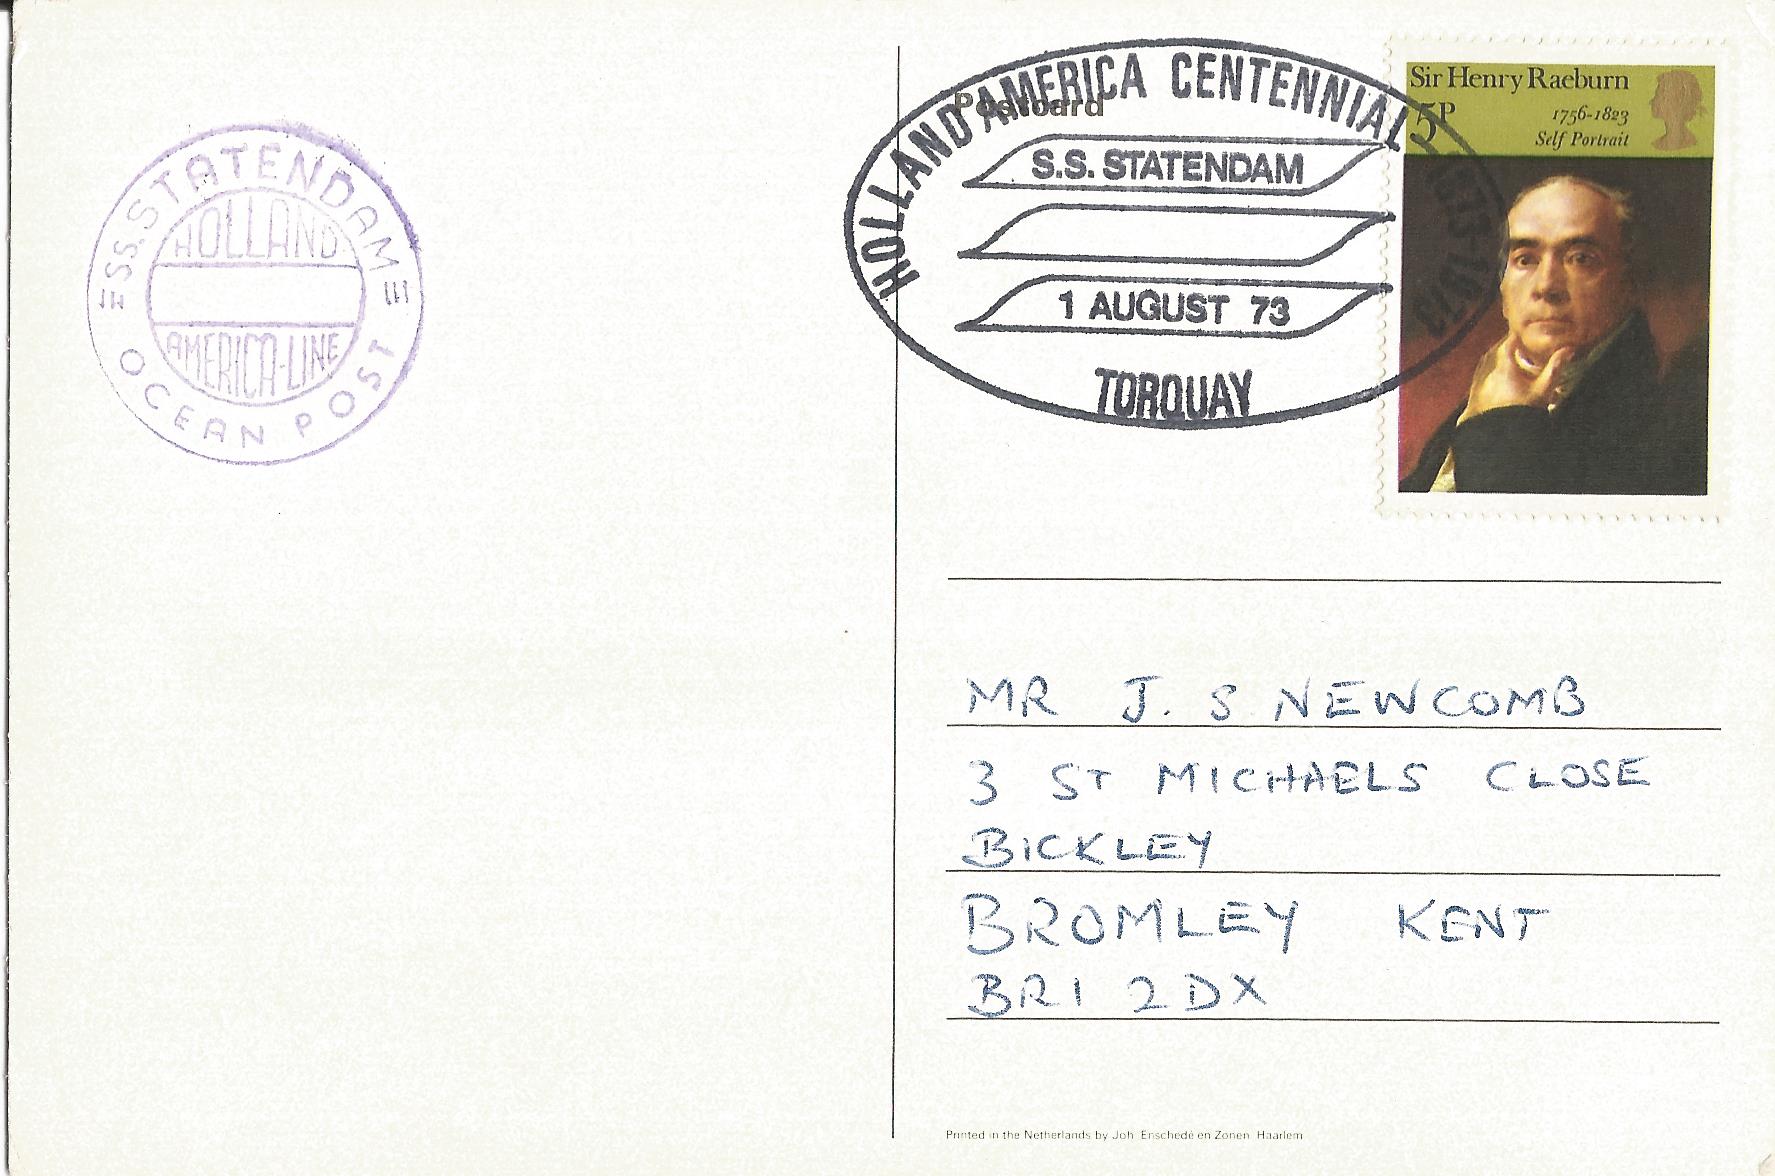 S.S. STATENDAM
HOLLAND
AMERICA-LINE
OCEAN POST
Postcard
HOLLAND AMERICA CENTENNIAL 1873-1973
S.S. STATENDAM
1 AUGUST 73
TORQUAY
Sir Henry Raeburn
5P
1756-1823
Self Portrait
MR J. S NEWCOMB
3 ST MICHAELS CLOSE
BICKLEY
BROMLEY KENT
BR1 2DX
Printed in the Netherlands by Joh. Enschedé en Zonen Haarlem